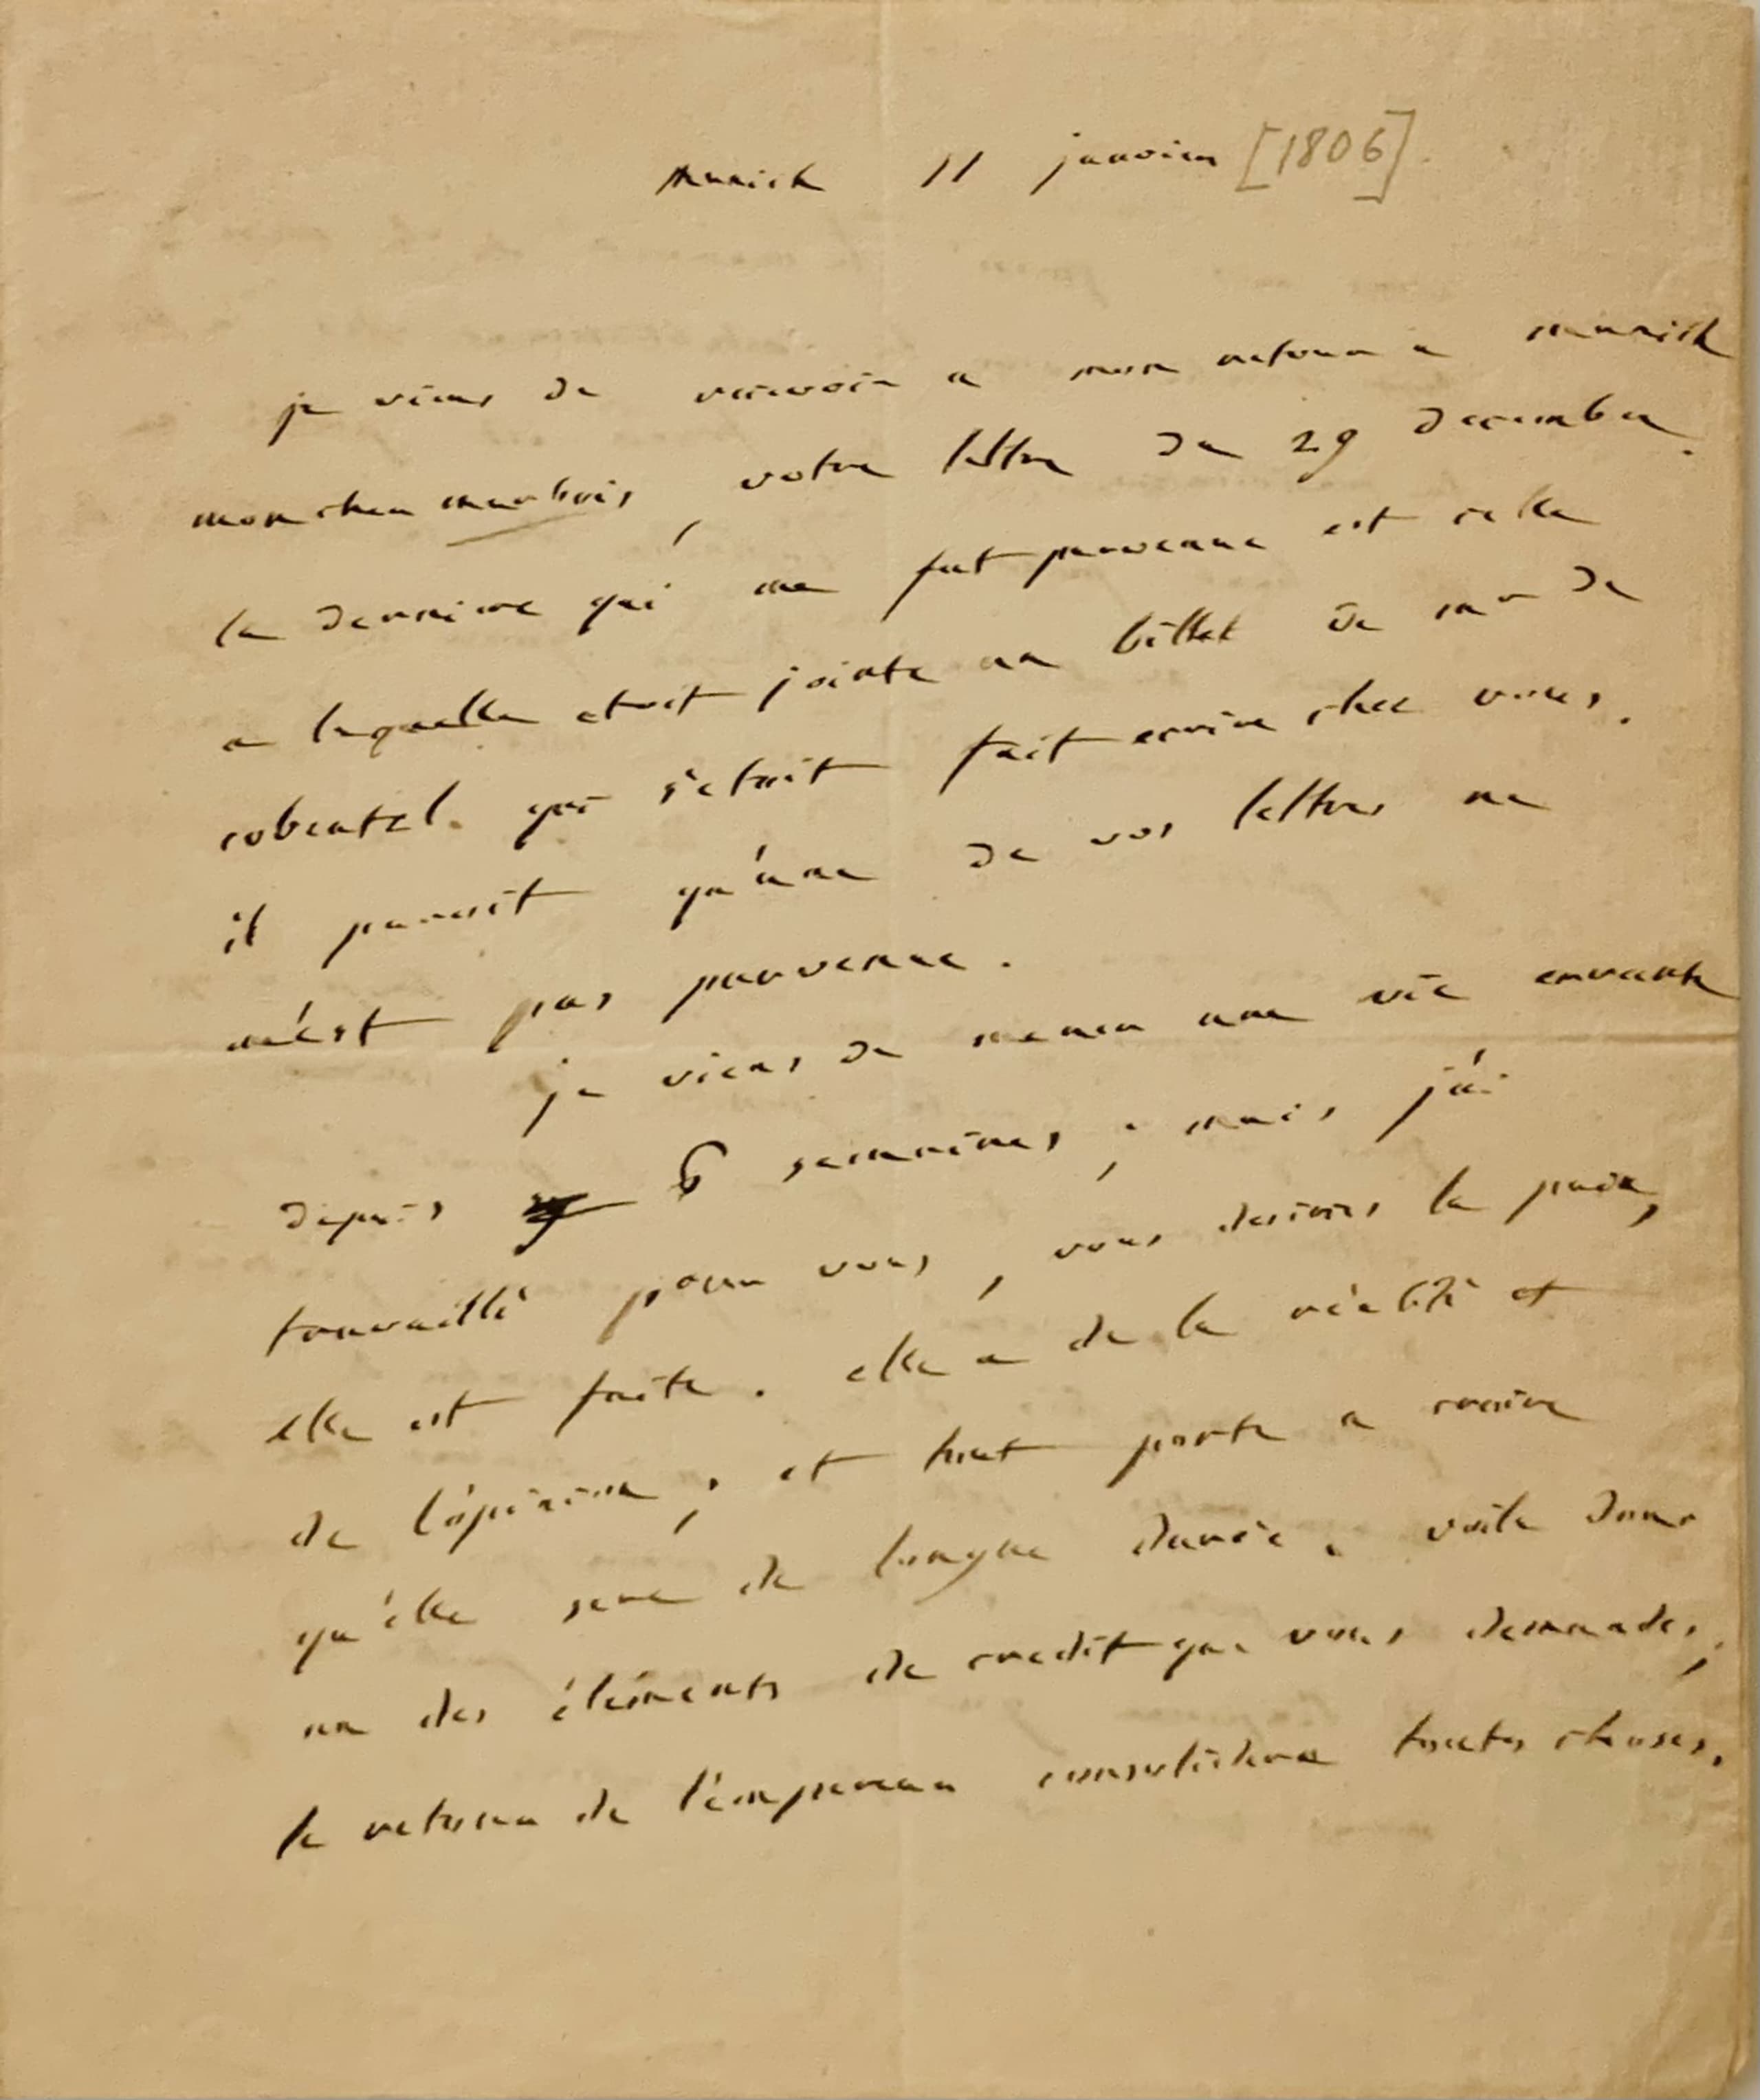 Munich 11 janvier [1806].
je viens de recevoir a mon retour a munich
mon cher marbois, votre lettre du 29 decembre.
la derniere qui me fut parvenue est celle
a laquelle etoit jointe un billet de mr de
cobentzel. qui s'etoit fait ecrire chez vous.
il paroit qu'une de vos lettres ne
m'est pas parvenue.
je viens de mener une vie errante
depuis 6 semaines; mais j'ai
travaillé pour vous, vous desiriés la paix,
elle est faite. elle a de la réalité et
de l'opinion; et tout porte a croire
qu'elle sera de longue durée. voila donc
un des élémens de credit que vous demandés;
le retour de l'empereur consolidera toutes choses.